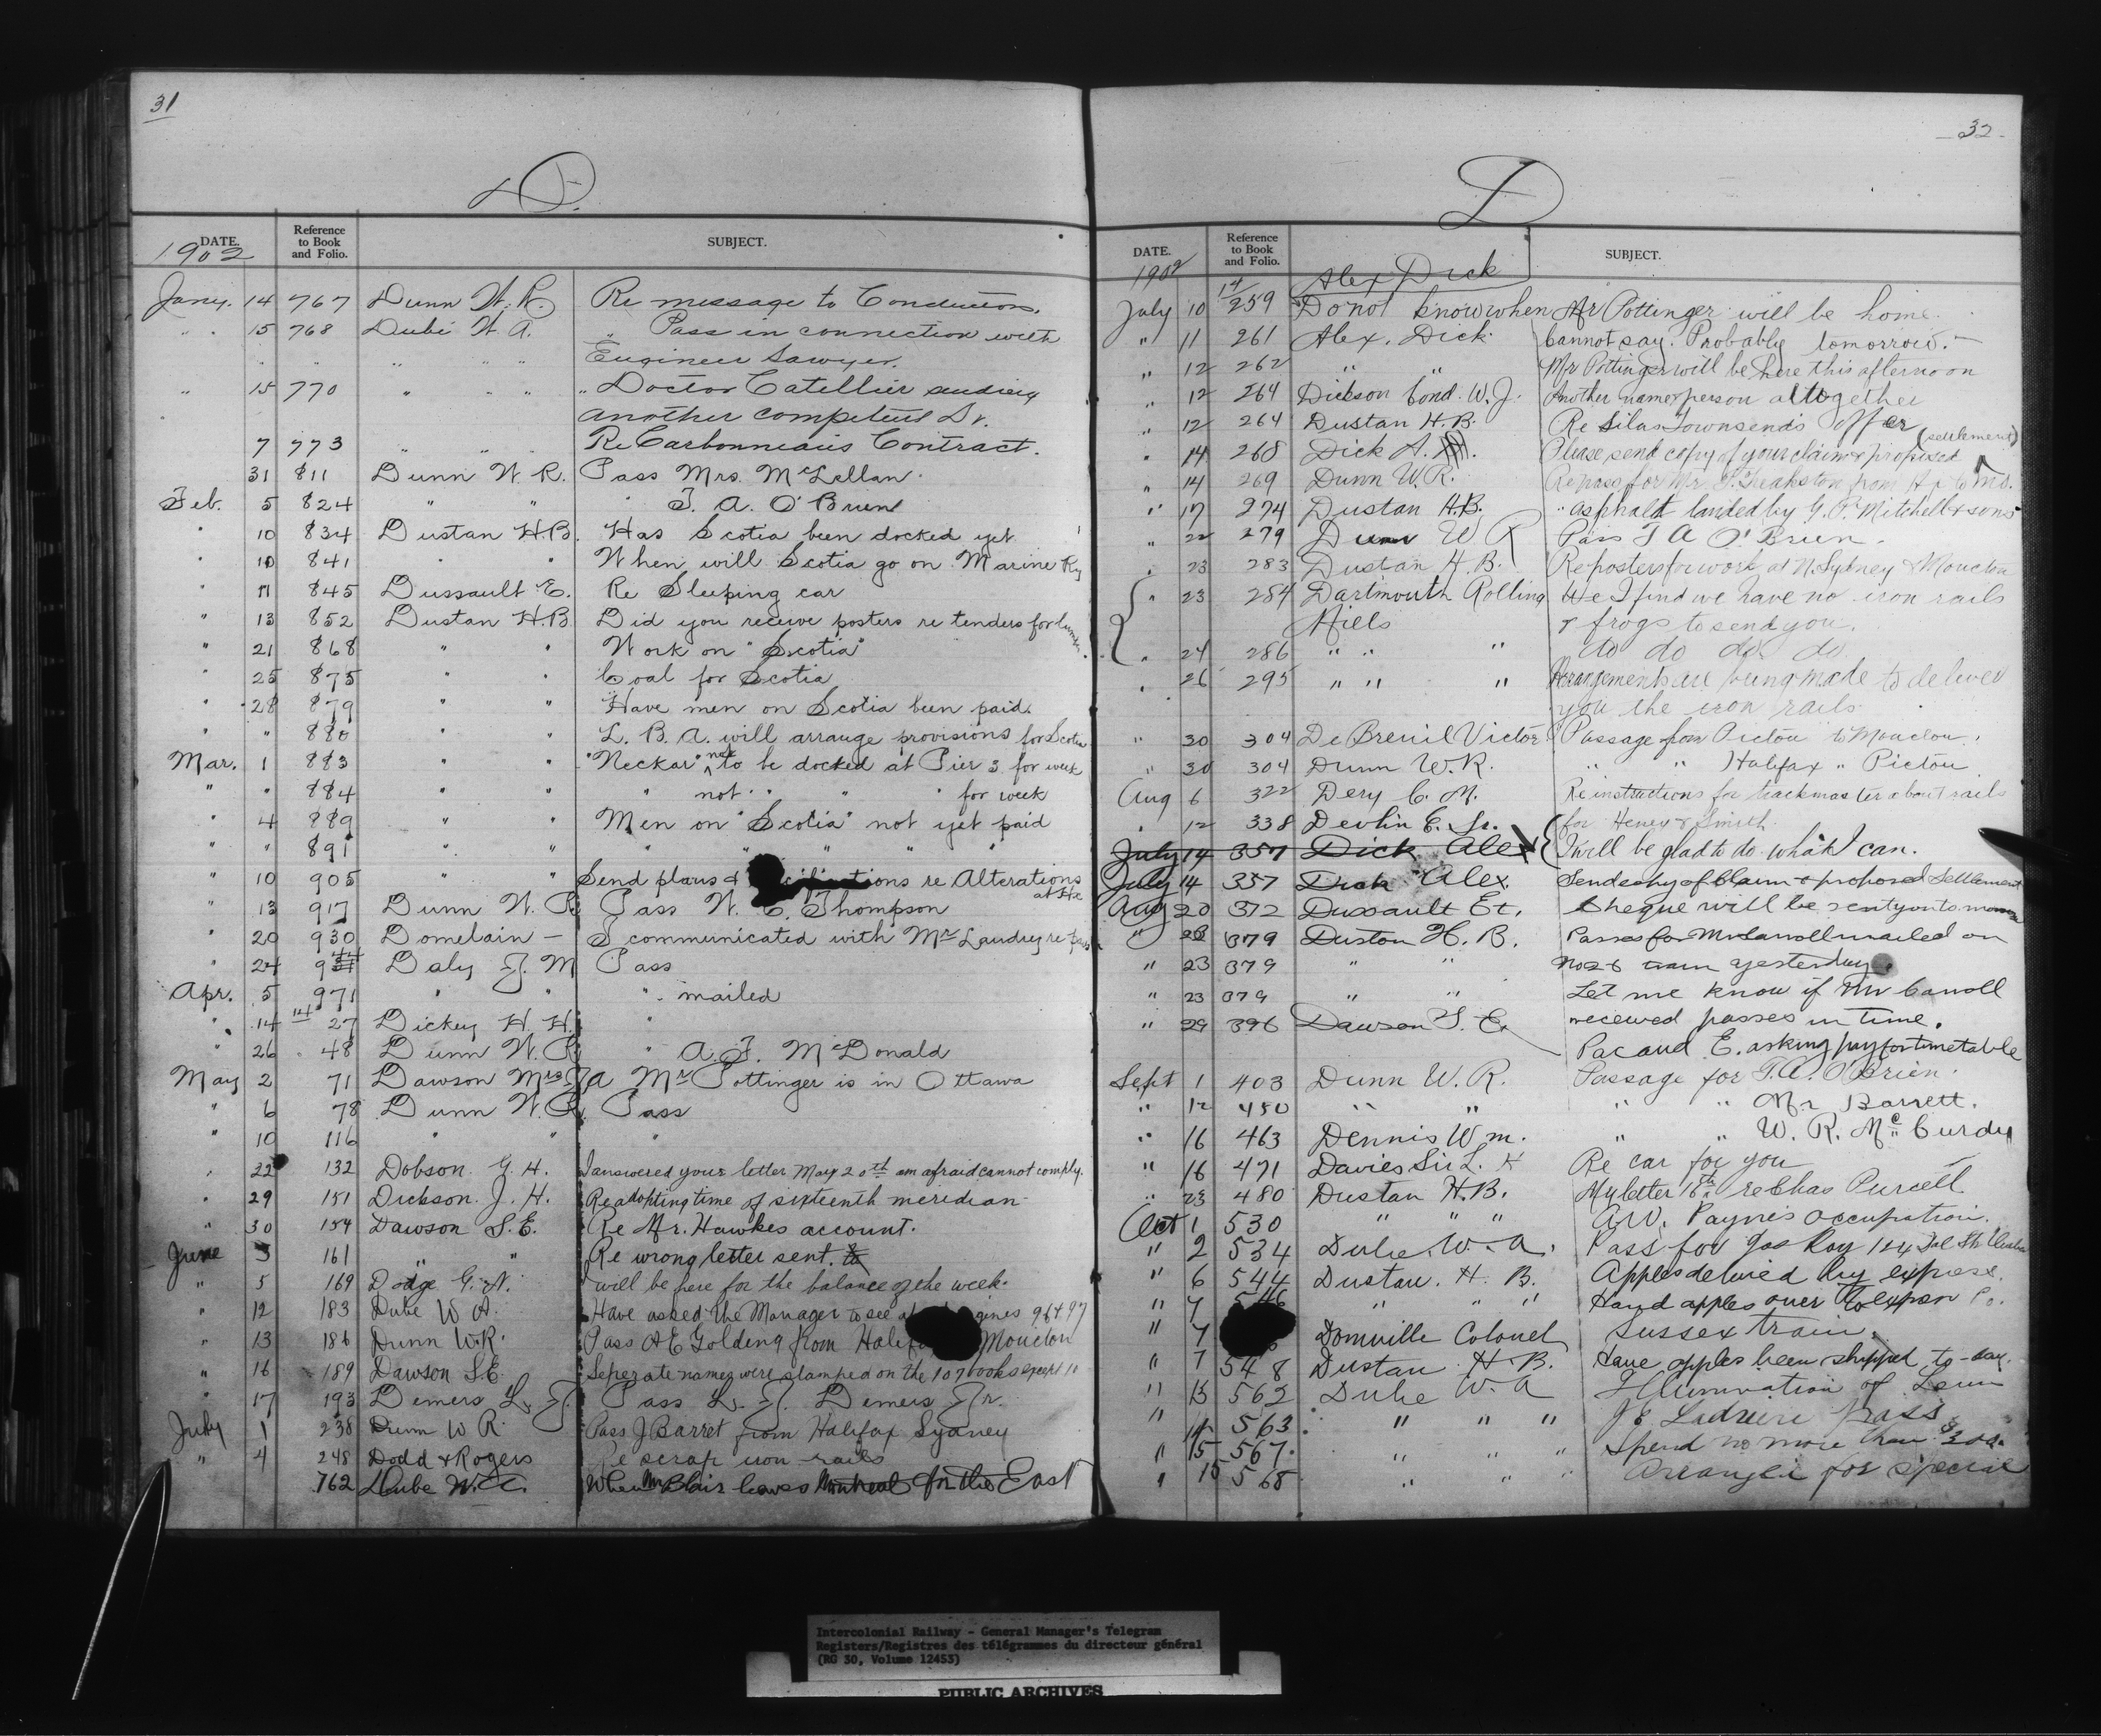 31
D.
DATE.
Reference
to Book
and Folio.
SUBJECT.
1902
Jany. 14 767 Dunn W. R. Re message to Conductors.
" 15 768 Dubé W. A. " Pass in connection with
" " " " " Engineer Sawyer.
" 15 770 " " " " Doctor Catellier sending
another competent Dr.
7 773 " " " Re Carbonneau's Contract.
31 811 Dunn W. R. Pass Mrs. McLellan.
Feb. 5 824 " " " T. A. O'Brien
" 10 834 Dustan H.B. Has Scotia been docked yet
" 10 841 " " When will Scotia go on Marine Ry
" 11 845 Dussault E. Re Sleeping car
" 13 852 Dustan H.B. Did you receive posters re tenders for lumber.
" 21 868 " " Work on "Scotia"
" 25 875 " " Coal for Scotia
" 28 879 " " Have men on Scotia been paid.
" " 880 " " L. B. A. will arrange provisions for Scotia
Mar. 1 883 " " "Neckar" not to be docked at Pier 3 for week
" " 884 " " " not " " " for week
" 4 889 " " Men on "Scotia" not yet paid
" " 891 " " " " " "
" 10 905 " " Send plans & re Alterations
at Hx
" 13 917 Dunn W. R. Pass W. C. Thompson
" 20 930 Domelain — I communicated with Mr Landry re pass
" 24 944 Daly J. M Pass
Apr. 5 971 " " " mailed
" 14 14 27 Dickey H. H. "
" 26 48 Dunn W. R. " A. J. McDonald
May 2 71 Dawson Mrs J A Mr Pottinger is in Ottawa
" 6 78 Dunn W. R. Pass
" 10 116 " " "
" 22 132 Dobson G. H. I answered your letter May 20th am afraid cannot comply.
" 29 151 Dickson J. H. Re adopting time of sixteenth meridian
" 30 154 Dawson S. E. Re Mr. Hawkes account.
June 3 161 " " Re wrong letter sent.
" 5 169 Dodge G. N. will be here for the balance of the week.
" 12 183 Dube W A. Have asked the Manager to see 96 & 97
" 13 186 Dunn W.R. Pass A E Golding from Halifax Moncton
" 16 189 Dawson S.E. Seperate names were stamped on the 107 books except 10
" 17 193 Demers L. J. Pass L. J. Demers Jr.
July 1 238 Dunn W R. Pass J Barret from Halifax Sydney
" 4 248 Dodd & Rogers Re scrap iron rails
762 Dube W. A. When Mr Blair leaves Montreal for the East
32
D
DATE.
Reference
to Book
and Folio.
SUBJECT.
1902
14
Alex Dick
July 10 259 Do not know when Mr Pottinger will be home.
" 11 261 Alex. Dick. Cannot say. Probably tomorrow.
" 12 262 " " Mr Pottinger will be here this afternoon
" 12 264 Dickson Cond. W. J. Another name & person altogether
" 12 264 Dustan H. B. Re Silas Townsend's offer
" 14 268 Dick A. Please send copy of your claim & proposed (settlement)
" 14 269 Dunn W. R. Re pass for Mr. from Hx to
" 17 274 Dustan H.B. " asphalt landed by G. P. Mitchell & sons
" 22 279 Dunn W R Pass T A O'Brien.
" 23 283 Dustan H. B. Re posters for work at N. Sydney & Moncton
" 23 284 Dartmouth Rolling We I find we have no iron rails
Mills & frogs to send you.
" 24 286 " " " do do do do
" 26 295 " " " Arrangements are being made to deliver
you the iron rails
" 30 304 De Breuil Victor Passage from Pictou to Moncton.
" 30 304 Dunn W. R. " " Halifax " Pictou
Aug 6 322 Dery C. M. Re instructions for trackmaster about rails
" 12 338 Devlin E. Jr. for Heney & Smith.
July 14 357 Dick Alex I will be glad to do what I can.
July 14 357 Dick Alex. Send copy of claim & proposed settlement
Aug 20 372 Dussault Et. Cheque will be sent you to morrow
" 23 379 Duston H. B. Passes for Mr Carroll mailed on
" 23 379 " " No 26 train yesterday.
" 23 379 " " Let me know if Mr Carroll
" 29 396 Dawson S. E. received passes in time.
Pacaud E. asking pay for timetable
Sept 1 403 Dunn W. R. Passage for T. A. O'Brien.
" 12 450 " " " " Mr Barrett.
" 16 463 Dennis Wm. " " W. R. McCurdy
" 16 471 Davies Sir L. H Re car for you
" 23 480 Dustan H.B. My letter 16th re Chas Purcell
Oct 1 530 " " " A.W. Payne's occupation.
" 2 534 Dube W. A. Pass for Jos Roy 124
" 6 544 Dustan. H. B. Apples delivered by express.
" 7 546 " " " Hand apples over to express Co.
" 7 Domville Colonel Sussex train.
" 7 548 Dustan H. B. Have apples been shipped to-day.
" 13 562 Dube W. A Illumination of
" 14 563 " " " J E Ladriere pass
" 15 567 " " " Spend no more than $300.
" 15 568 " " " Arrange for special
Intercolonial Railway - General Manager's Telegram
Registers/Registres des télégrammes du directeur général
(RG 30, Volume 12453)
PUBLIC ARCHIVES